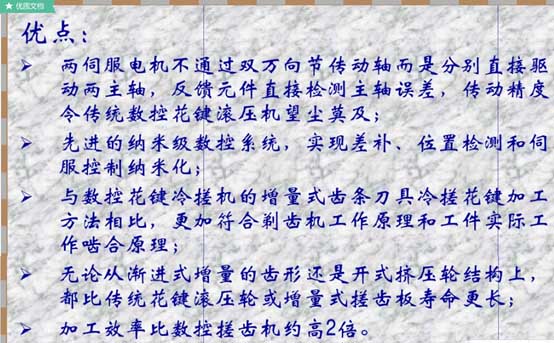 优质文档
优点：
两伺服电机不通过双万向节传动轴而是分别直接驱
动两主轴，反馈元件直接检测主轴误差，传动精度
令传统数控花键滚压机望尘莫及；
先进的纳米级数控系统，实现差补、位置检测和伺
服控制纳米化；
与数控花键冷搓机的增量式齿条刀具冷搓花键加工
方法相比，更加符合剃齿机工作原理和工件实际工
作啮合原理；
无论从渐进式增量的齿形还是开式挤压轮结构上，
都比传统花键滚压轮或增量式搓齿板寿命更长；
加工效率比数控搓齿机约高2倍。